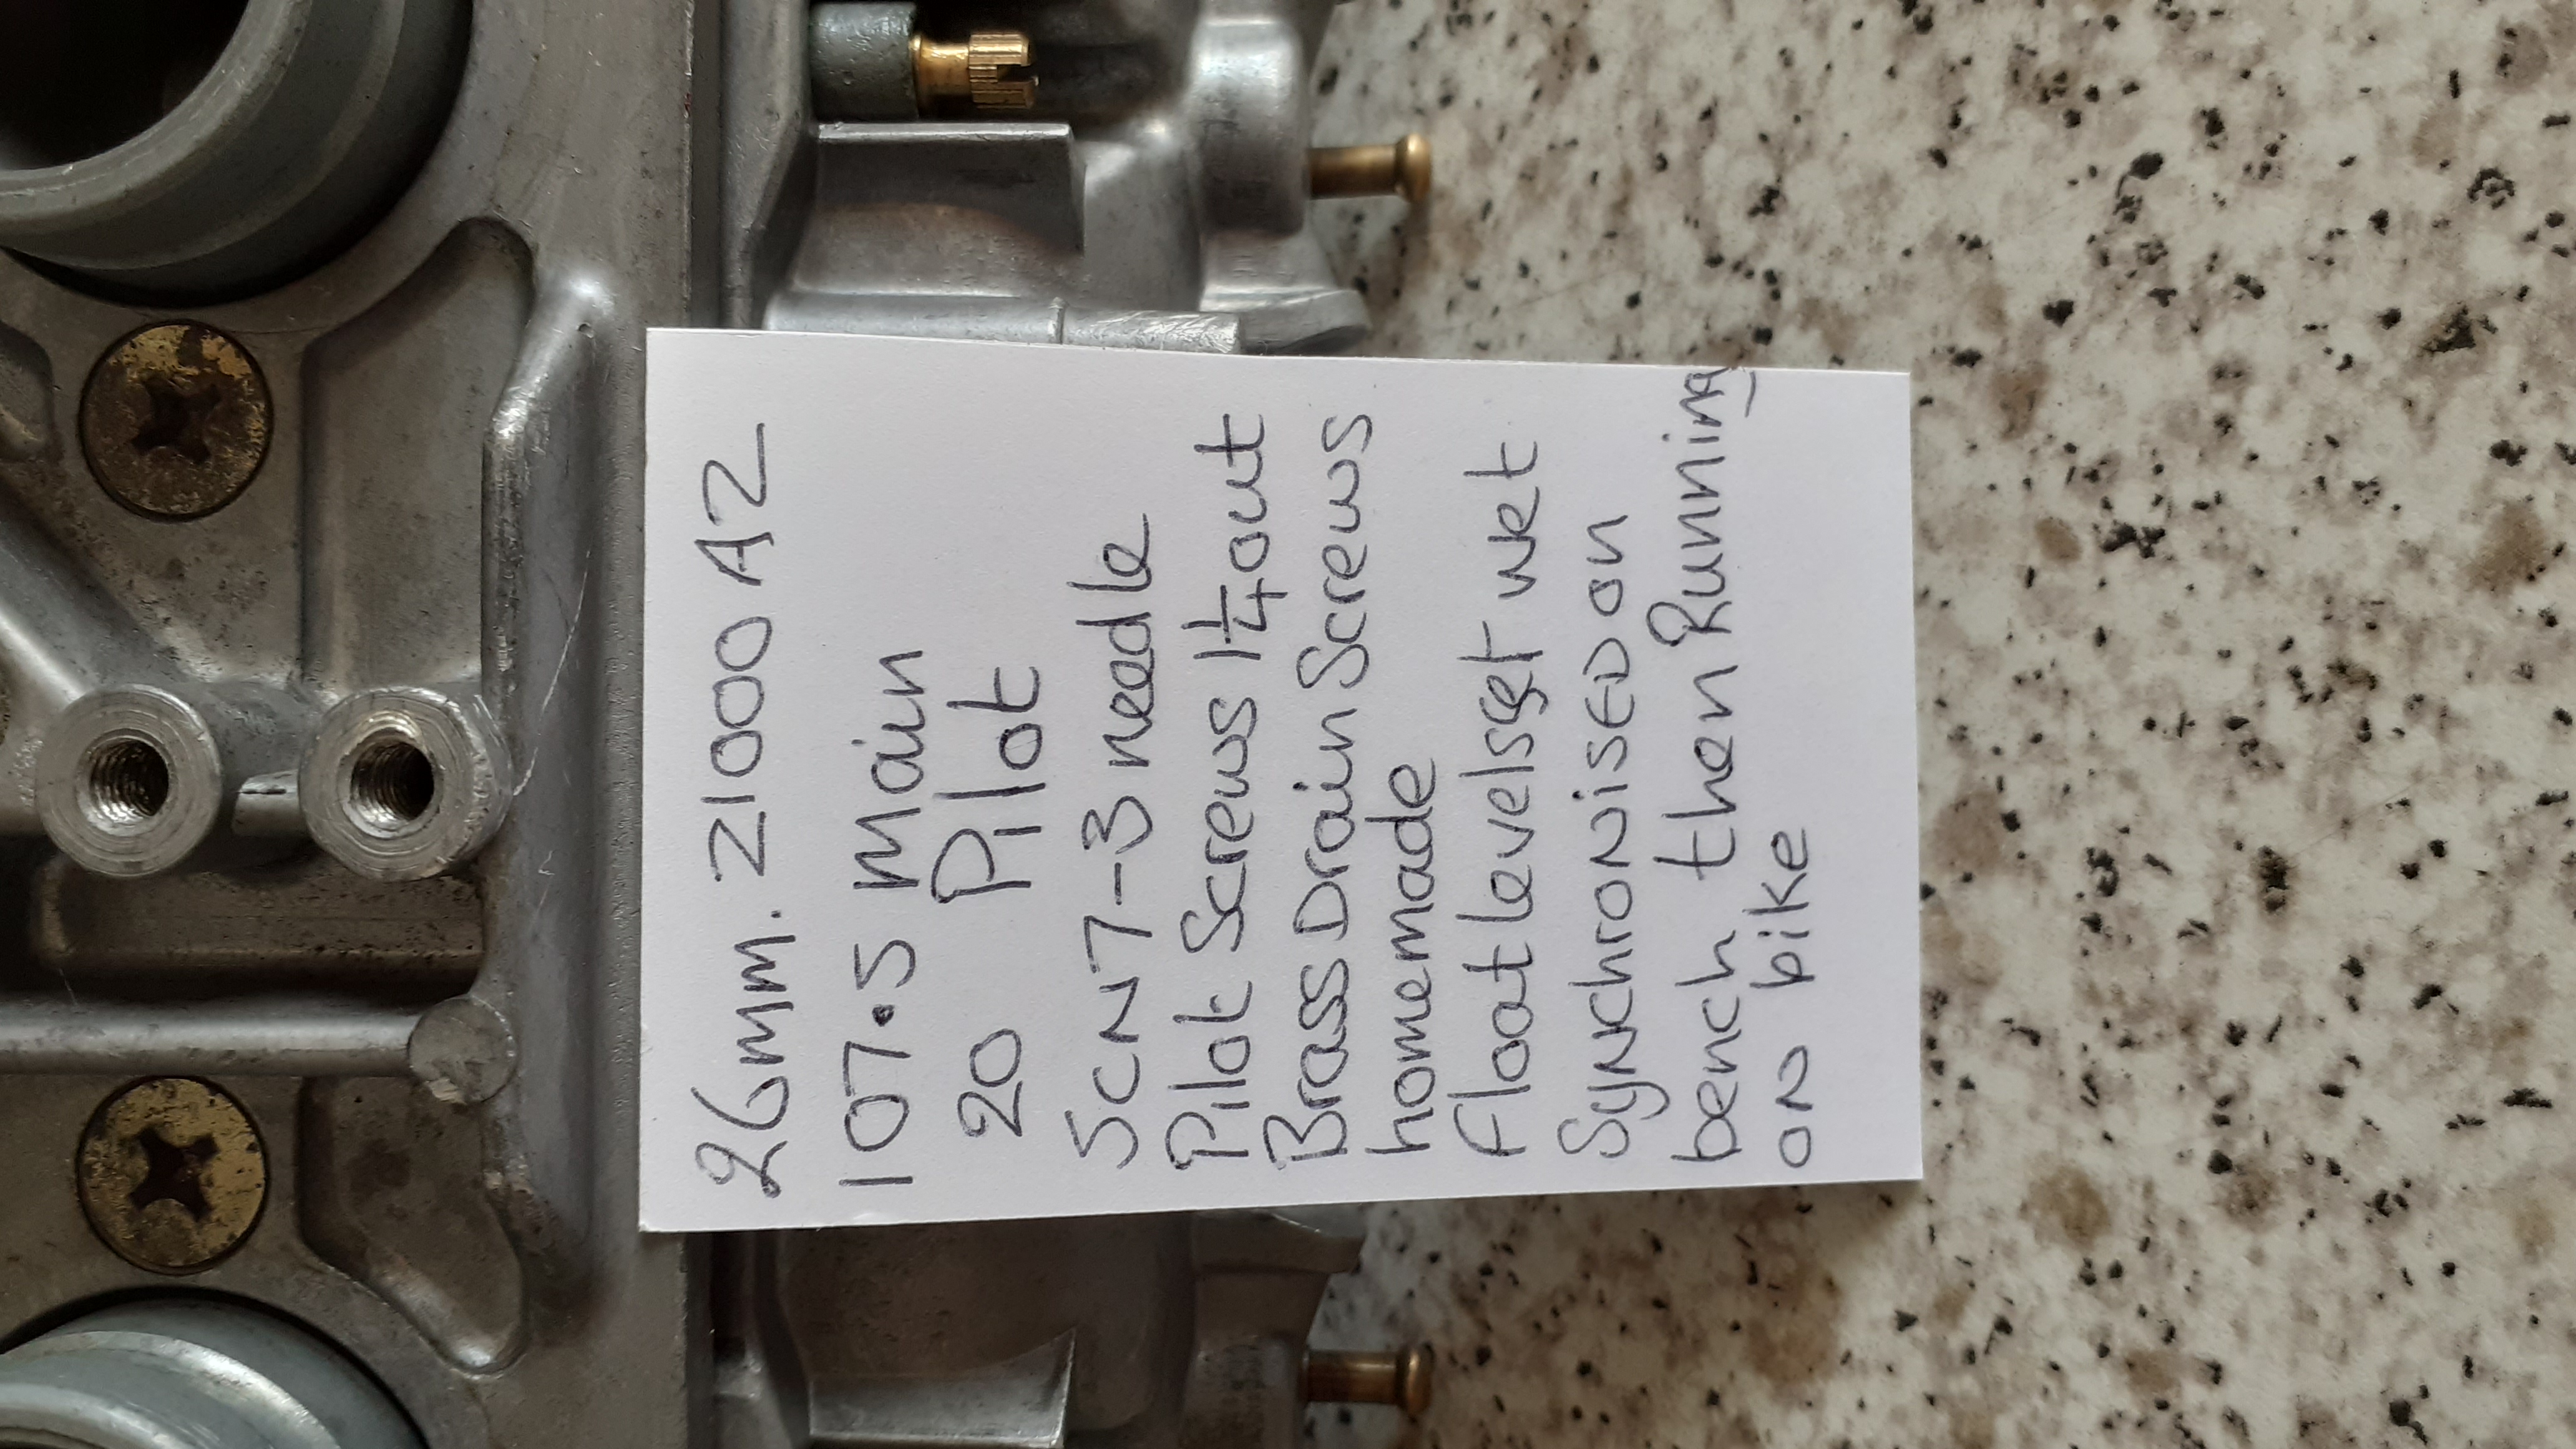 26mm. Z1000 A2
107.5 Main
20 Pilot
5CN7-3 needle
Pilot Screws 1 1/4 out
Brass Drain Screws
homemade
Float levels set wet
SyNchroNiSED on
bench then Running
ON bike